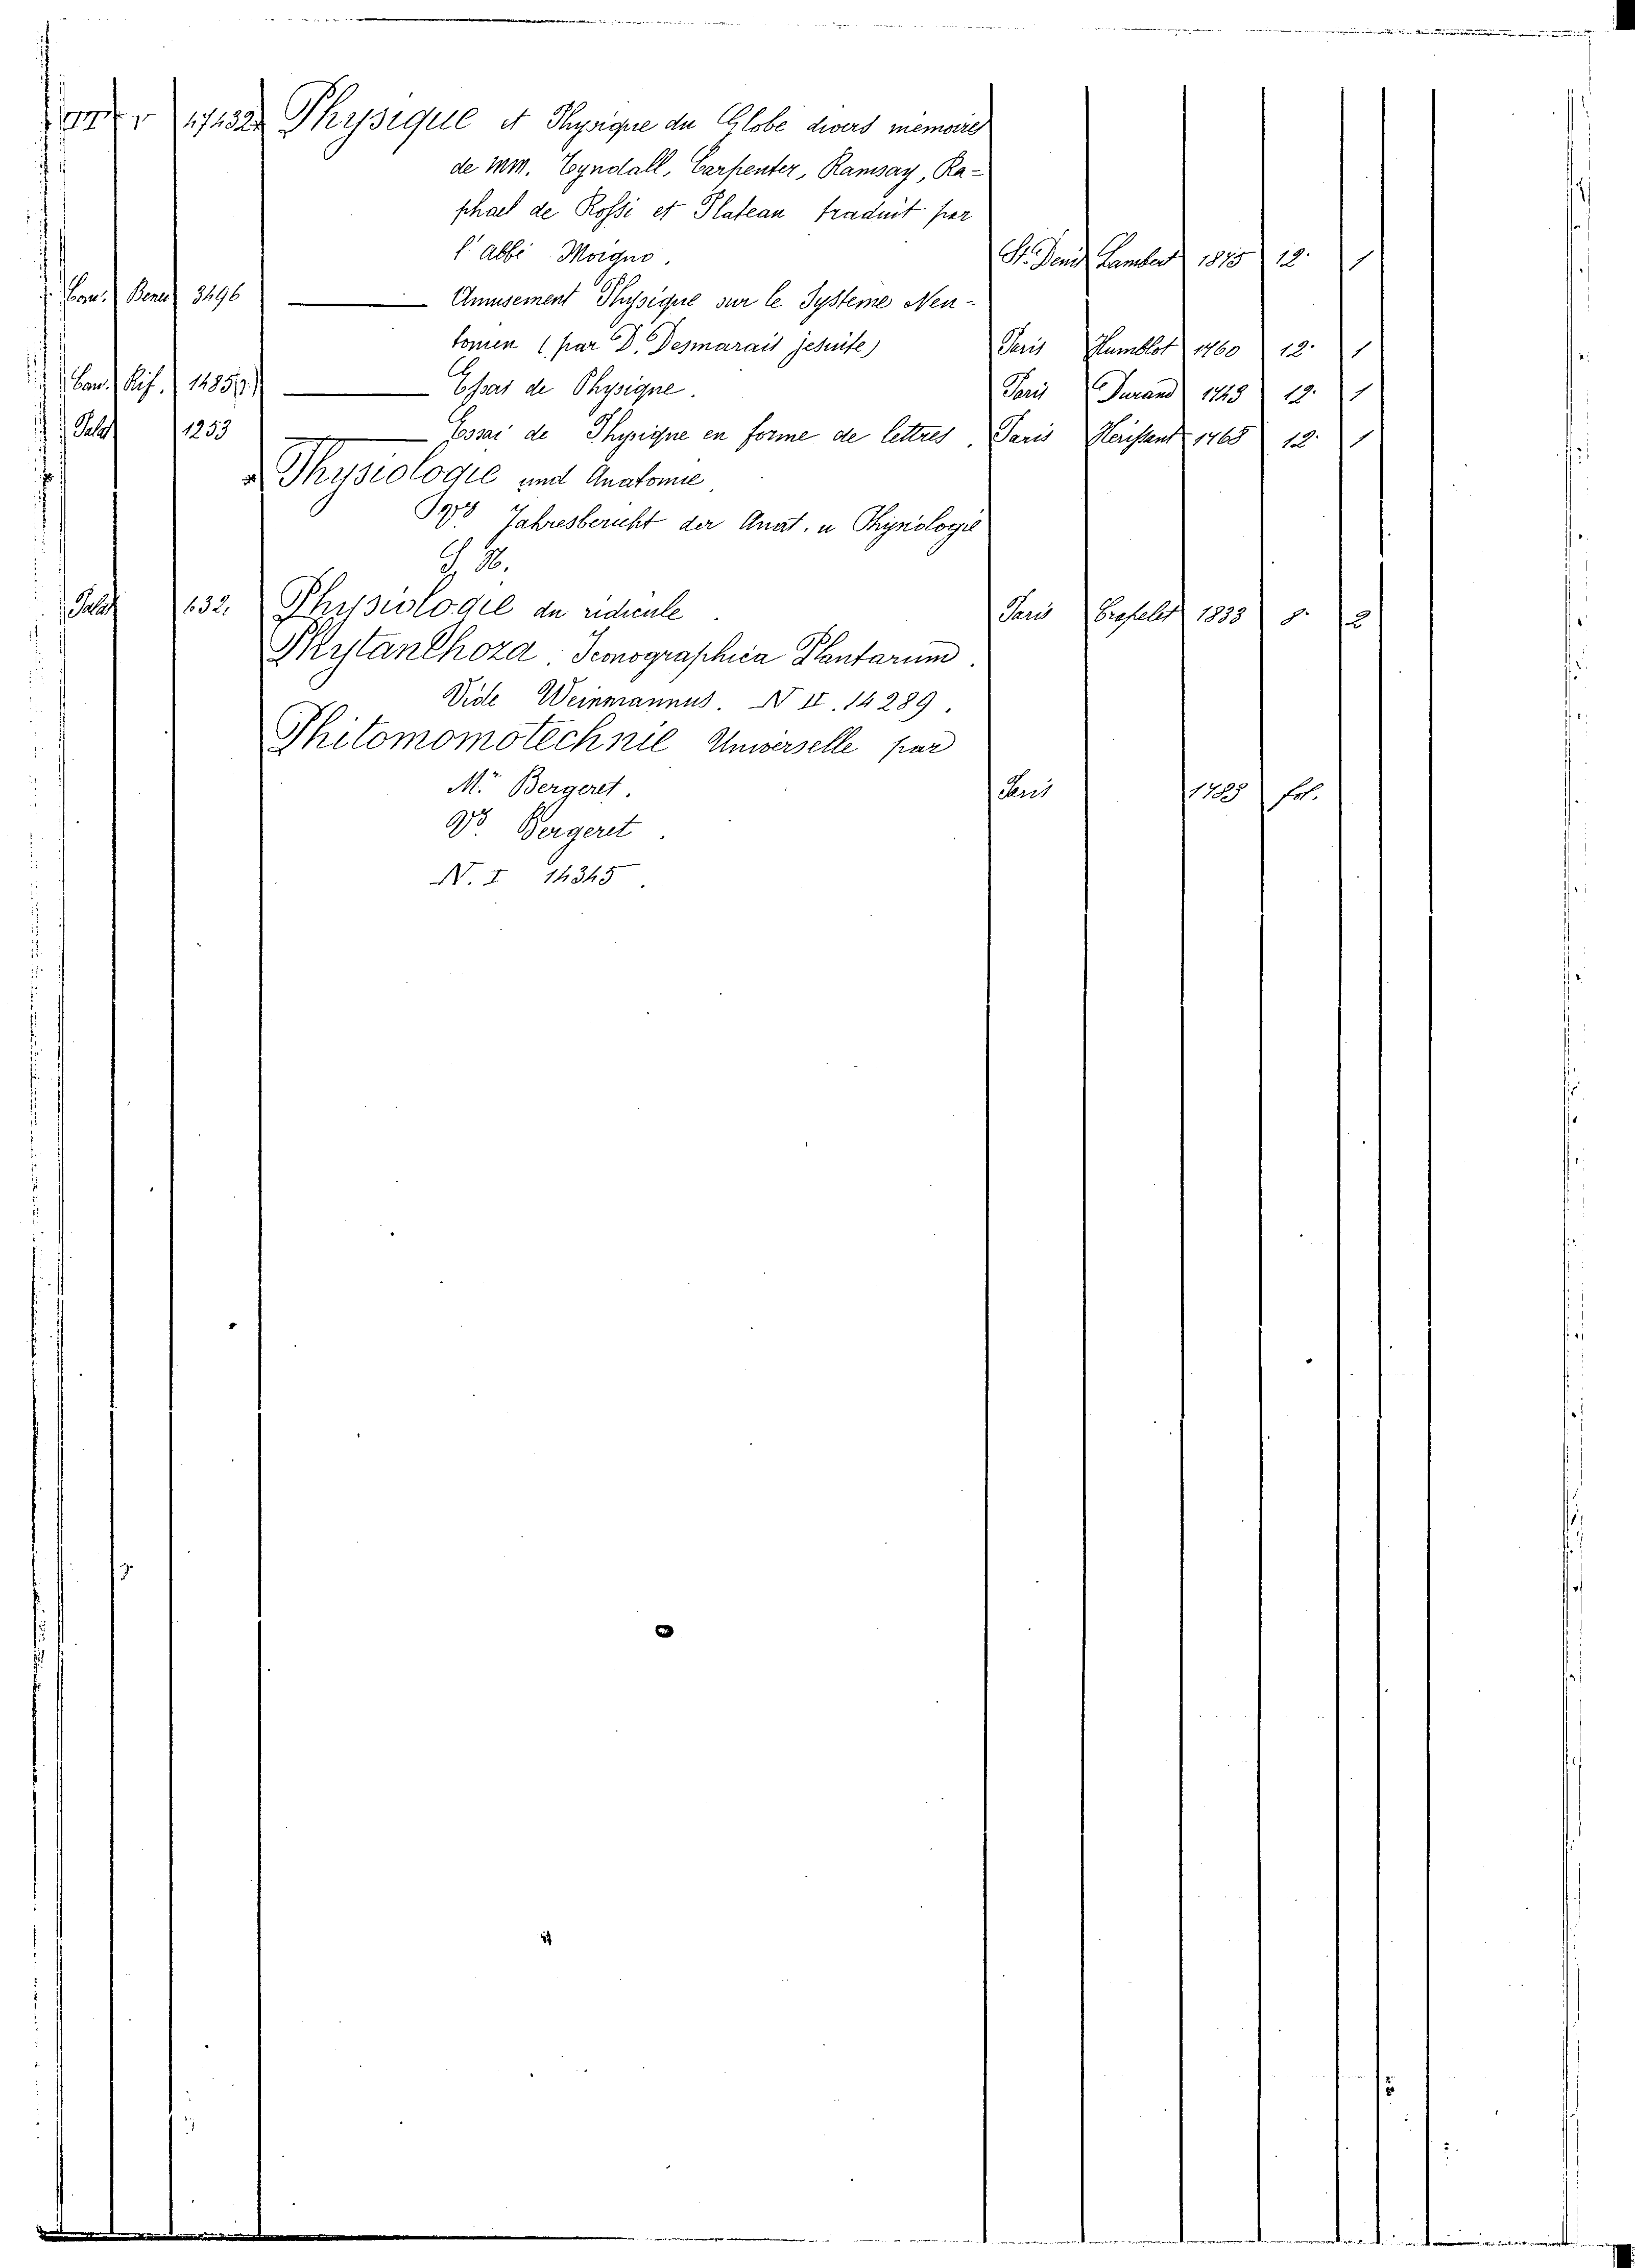 17132 Physique et Physique du Globe divers memoires
de MM. Tyndall, Carpenter, Ramsay, Ra-
phael de Rossi et Plateau traduit par
l'Abbé Moigno. St. Denis Lambert 1875 12. 1
Com. Bened 3496 Amusement Physique sur le Systeme Neu-
tonien (par D. Desmarais jesuite) Paris Humblot 1760 12. 1
Can. Rif. 1485 Essai de Physique. Paris Durand 1743 12. 1
Palat 1253 Essai de Physique en forme de lettres. Paris Herissant 1768 12. 1
Physiologie und Anatomie
Jahresbericht der Anat. u Physiologie
Palat 632. Physiologie du ridicule Paris 1833 8. 2
Phytanthoza Iconographica Plantarum.
Vide Weinmannus. N II. 14289.
Phitomomotechnie Universelle par
Mr Bergeret. Paris 1783 fol.
Vs Bergeret.
N. I 14345